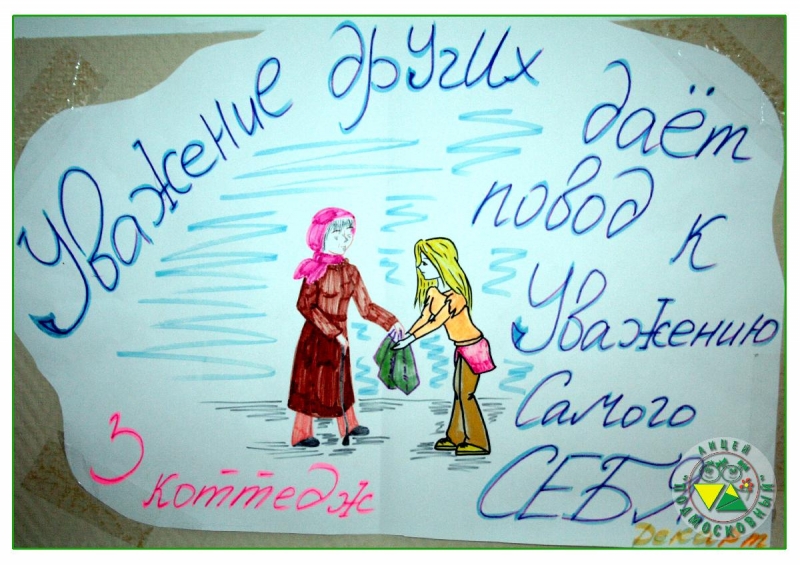 Уважение других даёт
повод к
Уважению
Самого
СЕБЯ
Декарт
3 коттедж
ЛИЦЕЙ "ПОДМОСКОВНЫЙ"